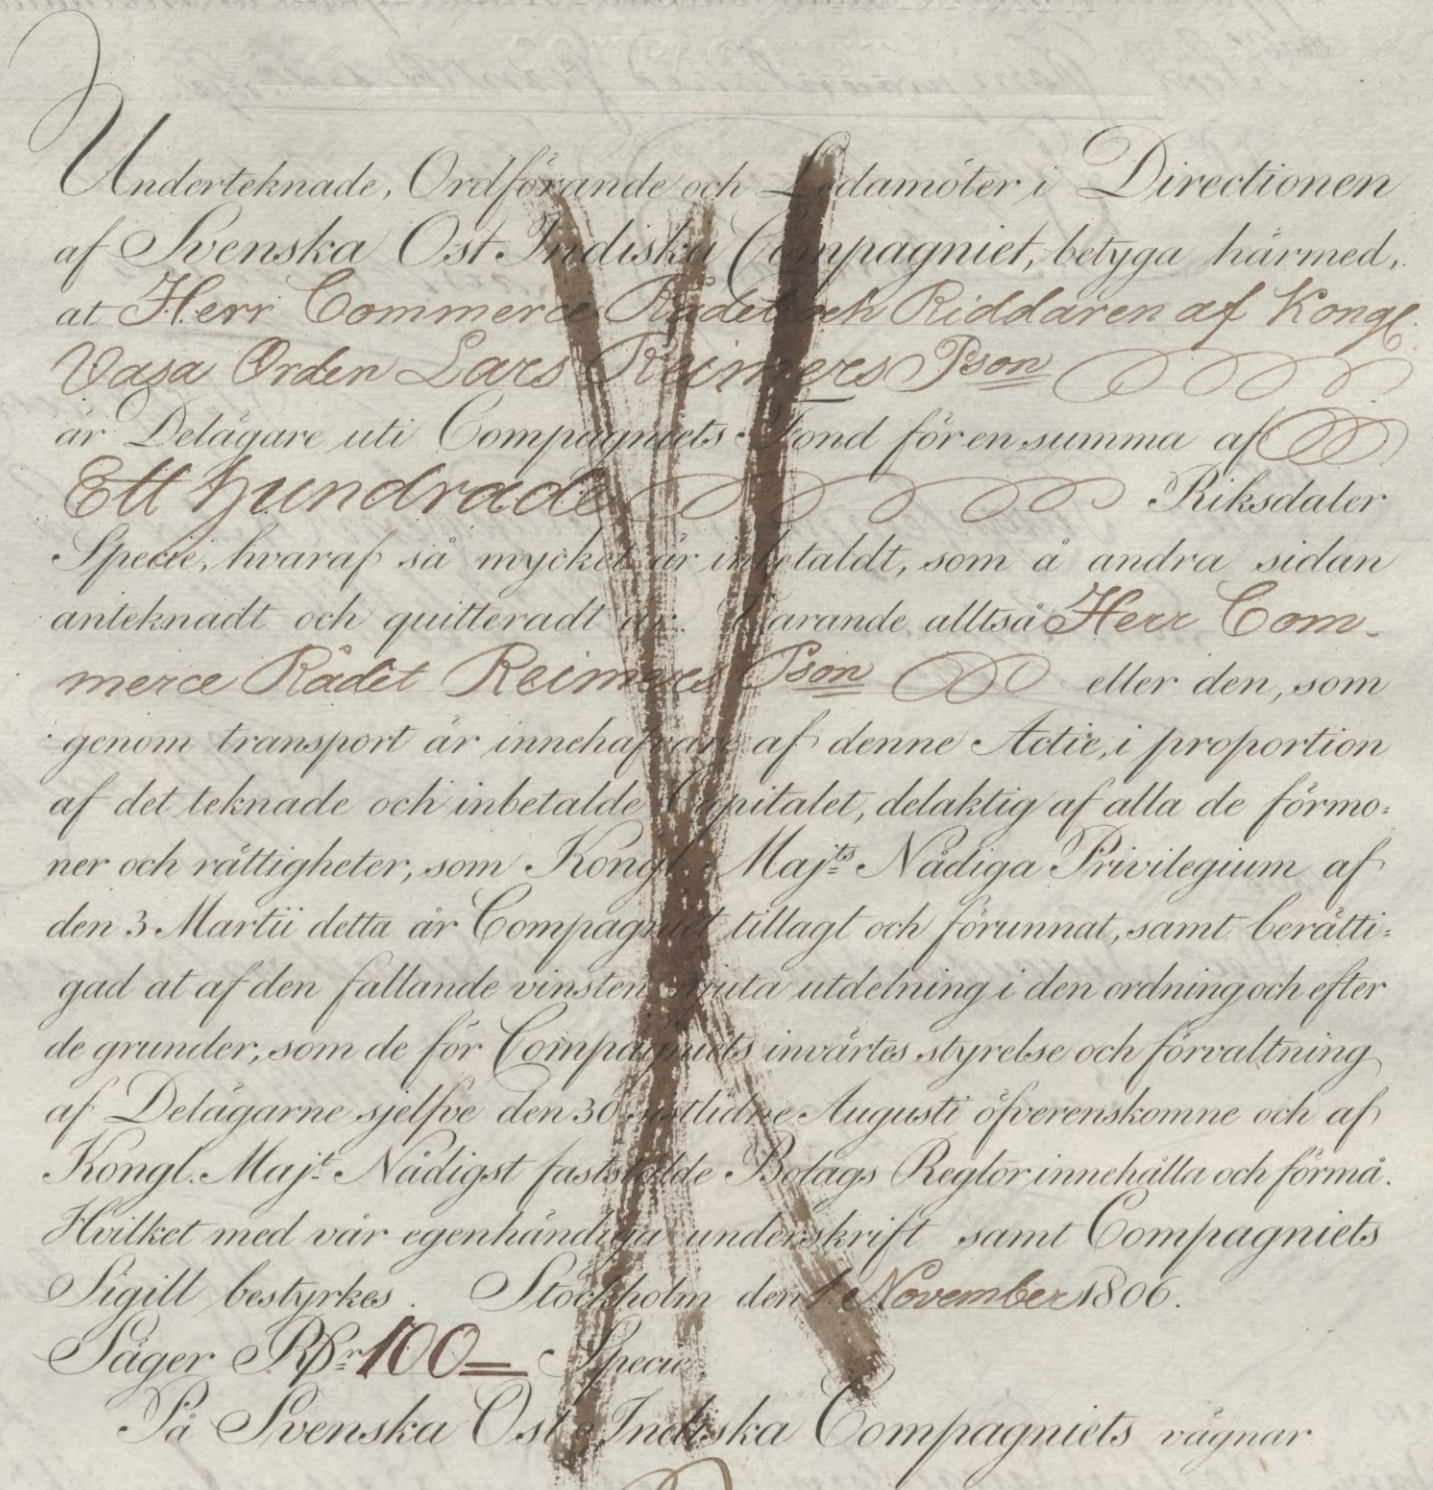 Underteknade, Ordförande och Ledamöter i Directionen
af Svenska Ost Indiska Compagniet, betyga härmed,
at Herr Commerce Rådet och Riddaren af Kongl.
Vasa Orden Lars Reimers Pson
är Delägare uti Compagniets Fond för en summa af
Ett hundrade Riksdaler
Specie, hvaraf så mycket är inbetaldt, som å andra sidan
anteknadt och quitteradt är. Varande alltså Herr Com-
merce Rådet Reimers Pson eller den, som
genom transport är innehafvare af denne Actie, i proportion
af det teknade och inbetalde Capitalet, delaktig af alla de förmo=
ner och rättigheter, som Kongl. Maj:ts Nådiga Privilegium af
den 3 Martii detta år Compagniet tillagt och förunnat, samt berätti=
gad at af den fallande vinsten njuta utdelning i den ordning och efter
de grunder, som de för Compagniets invärtes styrelse och förvaltning
af Delägarne sjelfve den 30 sistlidne Augusti öfverenskomne och af
Kongl. Maj:t Nådigst fastställde Bolags Reglor innehålla och förmå.
Hvilket med vår egenhändiga underskrift samt Compagniets
Sigill bestyrkes. Stockholm den 1. November 1806.
Säger Rdr 100 Specie
På Svenska Ost Indiska Compagniets vägnar